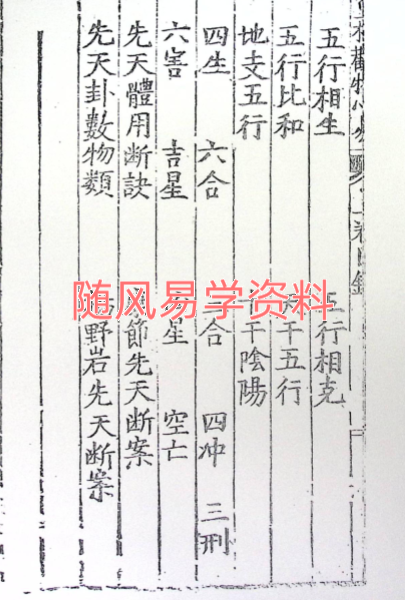 五行相生 五行相克
五行比和 天干五行
地支五行 十干陰陽
四生 六合 三合 四冲 三刑
六害 吉星 星 空亡
先天體用断訣 節先天断案
先天卦數物類 野岩先天断案
随风易学资料